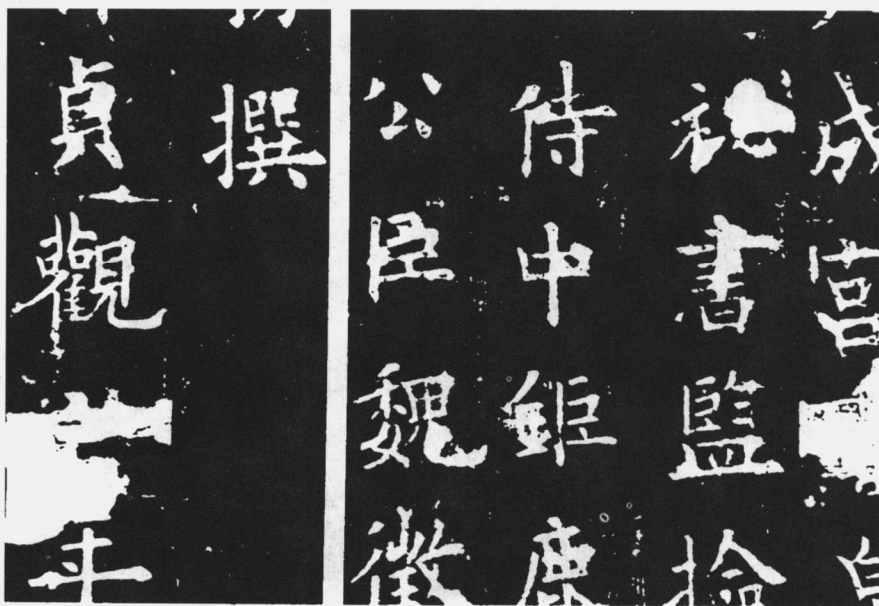 成宮
祕書監撿
侍中鉅鹿
公臣魏徵
撰
貞觀年